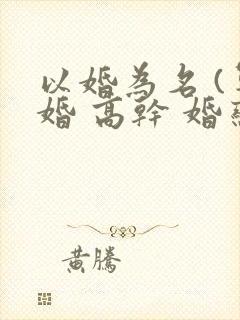 以婚為名(
婚 高幹 婚
黃騰